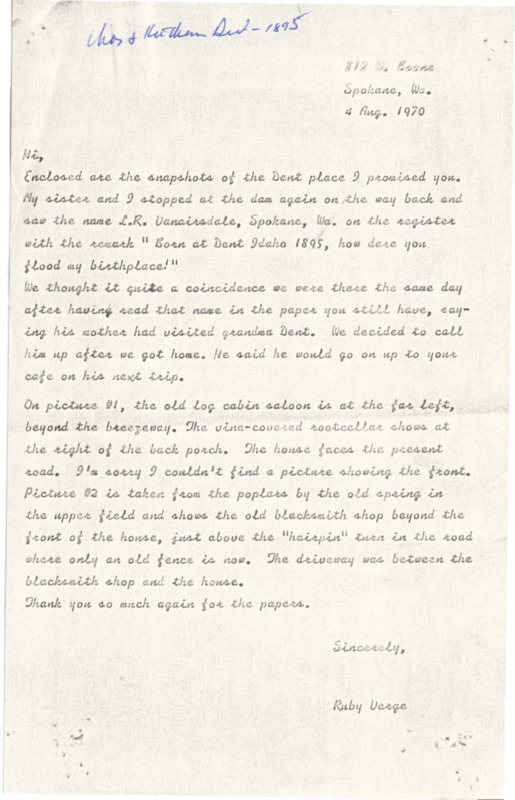 Chas & Dent - 1895
812 W. Boone
Spokane, Wa.
4 Aug. 1970
Hi,
Enclosed are the snapshots of the Dent place I promised you.
My sister and I stopped at the dam again on the way back and
saw the name L.R. Vanairsdale, Spokane, Wa. on the register
with the remark " Born at Dent Idaho 1895, how dare you
flood my birthplace!"
We thought it quite a coincidence we were there the same day
after having read that name in the paper you still have, say-
ing his mother had visited grandma Dent. We decided to call
him up after we got home. He said he would go on up to your
cafe on his next trip.
On picture #1, the old log cabin saloon is at the far left,
beyond the breezeway. The vine-covered rootcellar shows at
the right of the back porch. The house faces the present
road. I'm sorry I couldn't find a picture showing the front.
Picture #2 is taken from the poplars by the old spring in
the upper field and shows the old blacksmith shop beyond the
front of the house, just above the "hairpin" turn in the road
where only an old fence is now. The driveway was between the
blacksmith shop and the house.
Thank you so much again for the papers.
Sincerely,
Ruby Verge